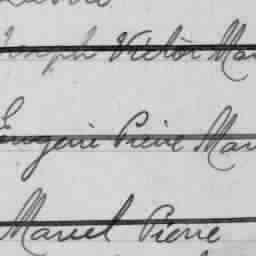 Joseph Victor Mar
Eugène Pierre Mar
Marcel Pierre